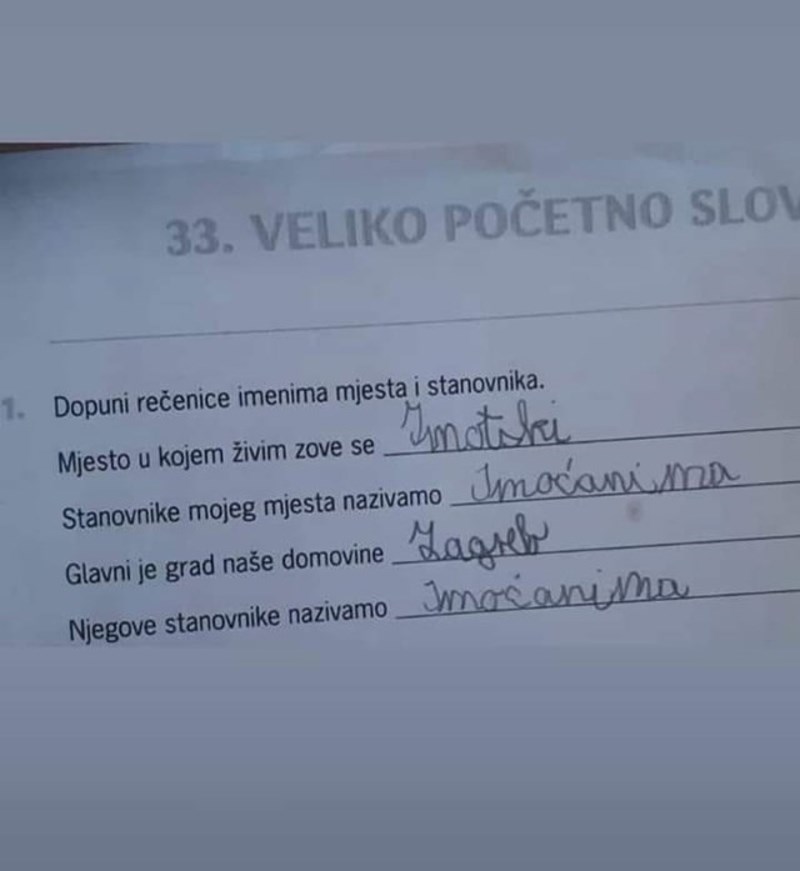 33. VELIKO POČETNO SLOV
1. Dopuni rečenice imenima mjesta i stanovnika.
Mjesto u kojem živim zove se Imotski
Stanovnike mojeg mjesta nazivamo Imoćanima
Glavni je grad naše domovine Zagreb
Njegove stanovnike nazivamo Imoćanima